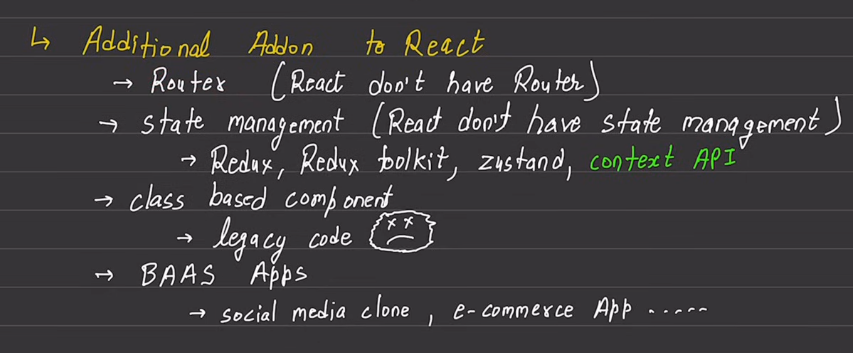 ↳ Additional Addon to React
→ Router (React don't have Router)
→ state management (React don't have state management)
→ Redux, Redux toolkit, zustand, context API
→ class based component
→ legacy code
→ BAAS Apps
→ social media clone, e-commerce App .....